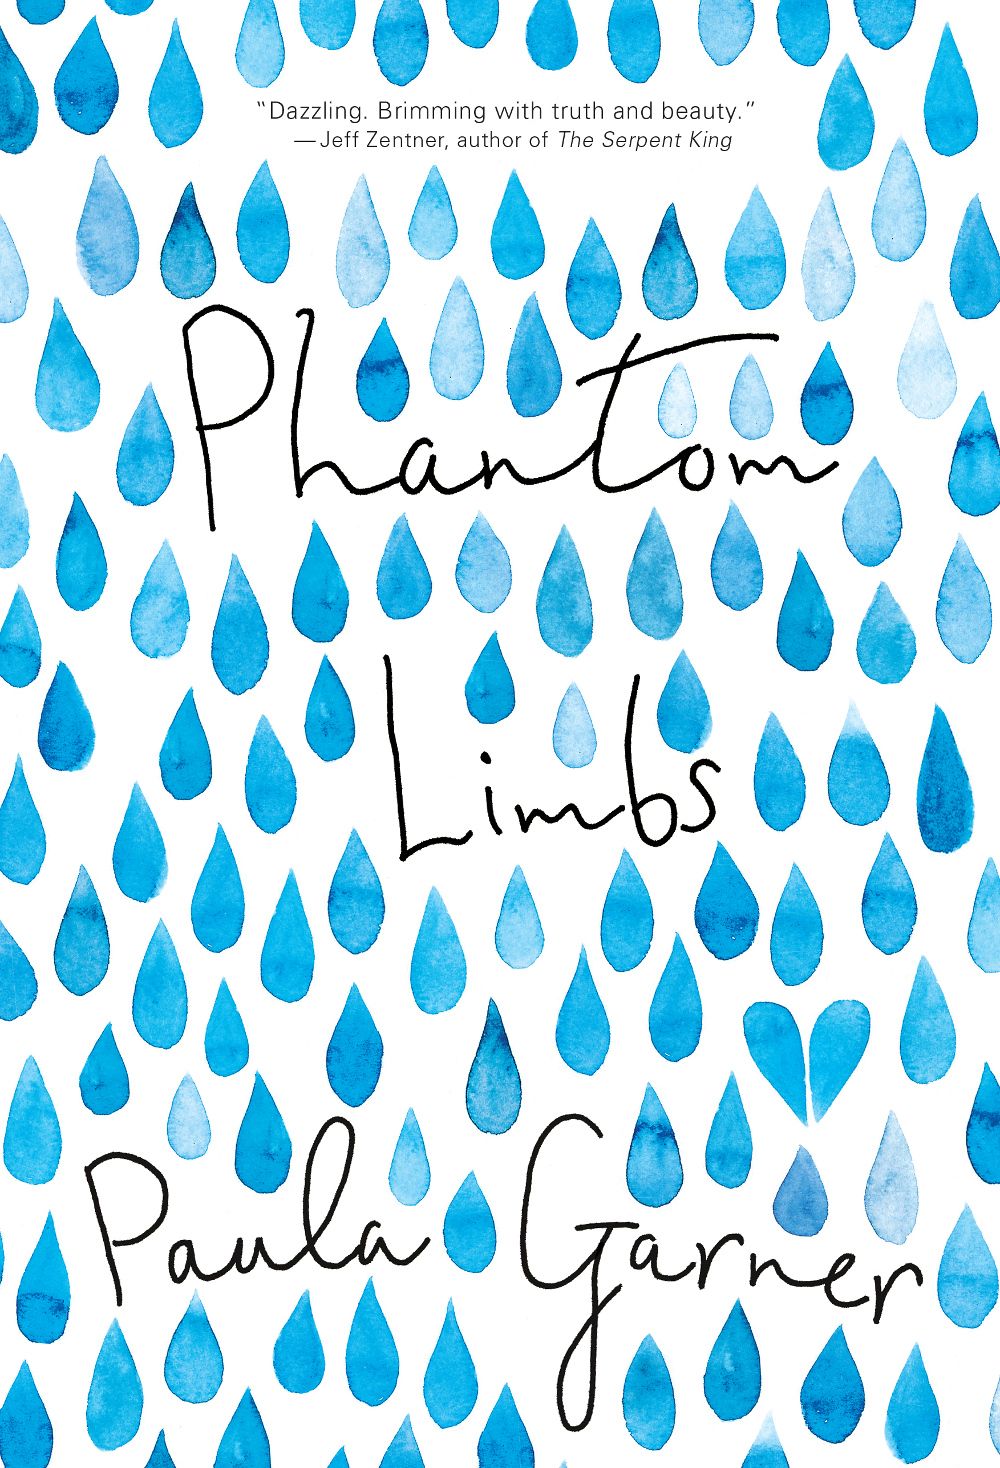 “Dazzling. Brimming with truth and beauty.”
—Jeff Zentner, author of The Serpent King
Phantom
Limbs
Paula Garner